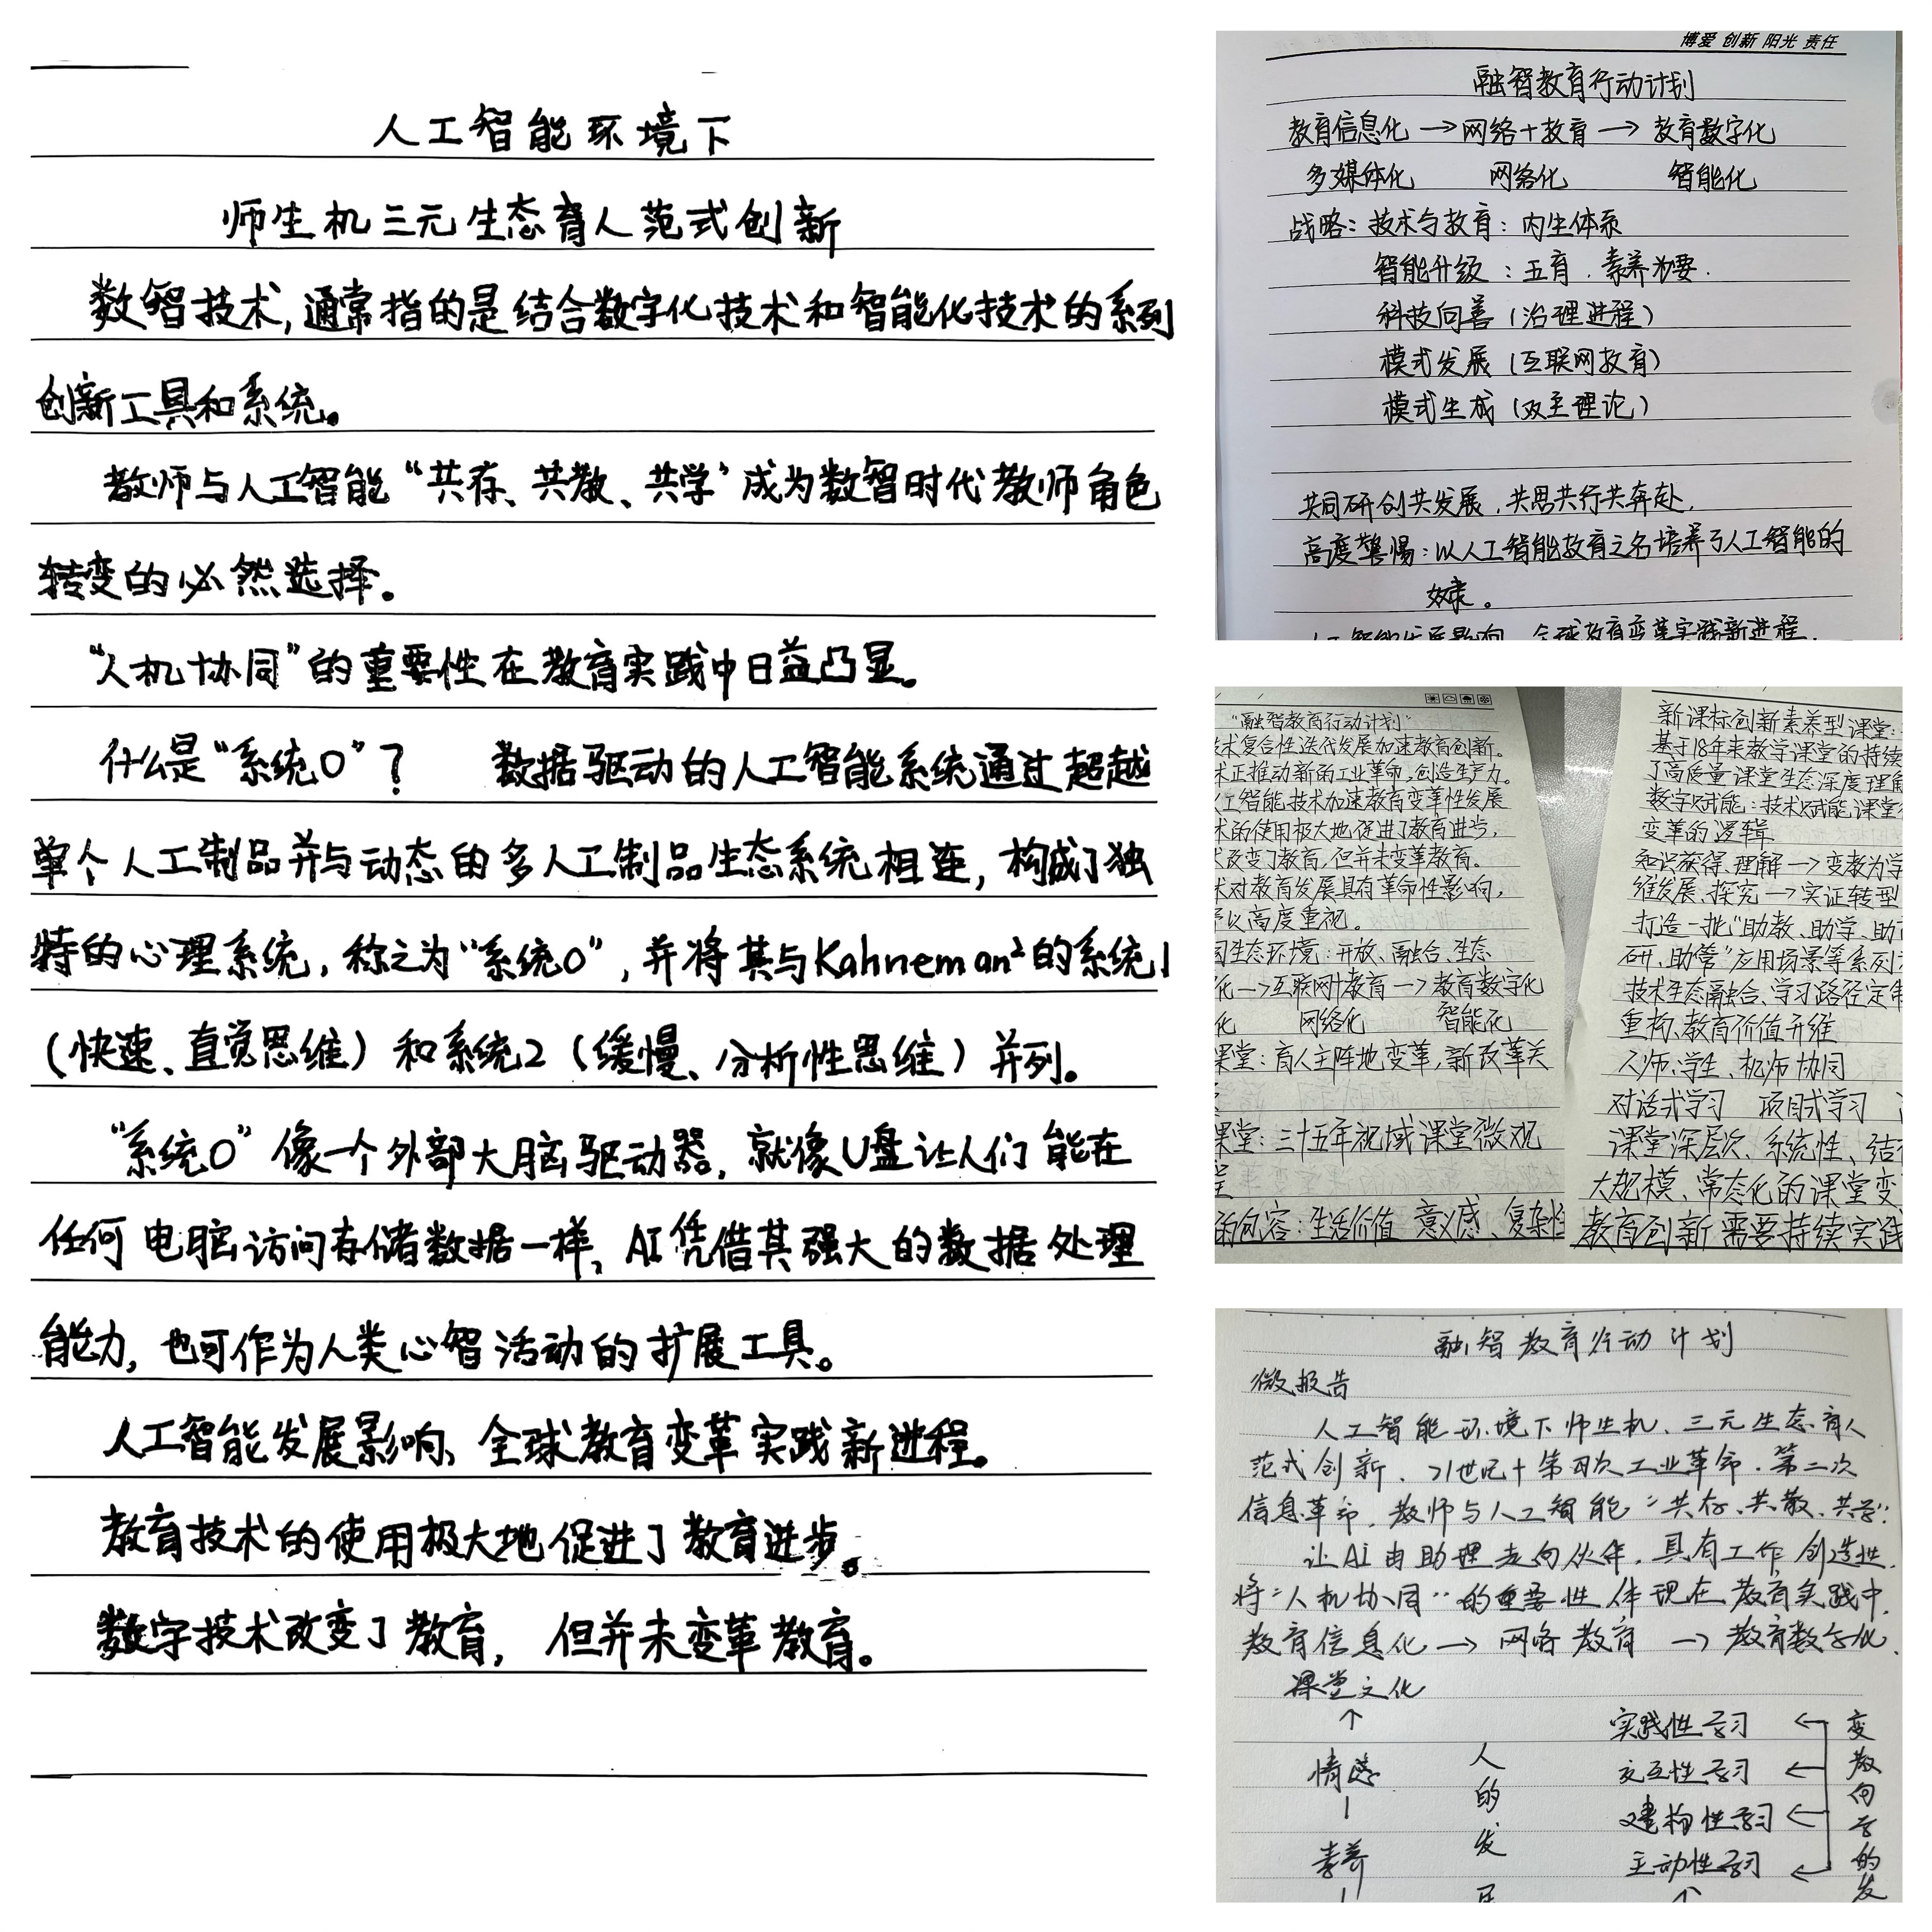 人工智能环境下
师生机三元生态育人范式创新
数智技术,通常指的是结合数字化技术和智能化技术的系列
创新工具和系统。
教师与人工智能“共存、共教、共学”成为数智时代教师角色
转变的必然选择。
“人机协同”的重要性在教育实践中日益凸显。
什么是“系统0”? 数据驱动的人工智能系统通过超越
单个人工制品并与动态的多人工制品生态系统相连,构成了独
特的心理系统,称之为“系统0”,并将其与Kahneman²的系统1
(快速、直觉思维)和系统2(缓慢、分析性思维)并列。
“系统0”像一个外部大脑驱动器,就像U盘让人们能在
任何电脑访问存储数据一样,AI凭借其强大的数据处理
能力,也可作为人类心智活动的扩展工具。
人工智能发展影响、全球教育变革实践新进程。
教育技术的使用极大地促进了教育进步。
数字技术改变了教育,但并未变革教育。
博爱 创新 阳光 责任
融智教育行动计划
教育信息化→网络+教育→教育数字化
多媒体化 网络化 智能化
战略:技术与教育:内生体系
智能升级:五育.素养为要.
科技向善(治理进程)
模式发展(互联网教育)
模式生成(双主理论)
共同研创共发展,共思共行共奔赴.
高度警惕:以人工智能教育之名培养了人工智能的
奴隶。
人工智能发展影响、全球教育变革实践新进程.
“融智教育行动计划”
技术复合性迭代发展加速教育创新。
术正推动新的工业革命,创造生产力。
人工智能技术加速教育变革性发展
术的使用极大地促进了教育进步,
改变了教育,但并未变革教育。
术对教育发展具有革命性影响,
予以高度重视。
生态环境:开放、融合、生态
化→互联网+教育→教育数字化
化 网络化 智能化
课堂:育人主阵地变革,新改革关
课堂:三十五年视域课堂微观
的内容:生活价值 意义感、复杂性
新课标创新素养型课堂:
基于18年来教学课堂的持续
了高质量课堂生态深度理解
数字赋能:技术赋能课堂
变革的逻辑
知识获得、理解→变教为学
维发展、探究→实证转型
打造一批“助教、助学、助
研、助管”应用场景等系列
技术生态融合、学习路径定制
重构、教育价值升维
人师、学生、机师协同
对话式学习 项目式学习
课堂深层次、系统性、结
大规模、常态化的课堂变
教育创新需要持续实践
融智教育行动计划
微报告
人工智能环境下师生机、三元生态育人
范式创新、21世纪+第四次工业革命.第二次
信息革命,教师与人工智能“共存、共教、共学”
让Ai由助理走向伙伴,具有工作创造性.
将“人机协同”的重要性体现在教育实践中.
教育信息化→网络教育→教育数字化.
课堂文化
↑
实践性学习 ←
情感
交互性学习 ←
建构性学习 ←
素养
主动性学习 ←
人的发展
变教向学的发